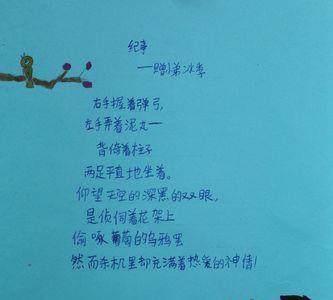 纪事
——赠小弟冰季
右手握着弹弓,
左手弄着泥丸——
背倚着柱子
两足平直地坐着。
仰望天空的深黑的双眼,
是侦伺着花架上
偷啄葡萄的乌鸦罢
然而杀机里却充满着热爱的神情!